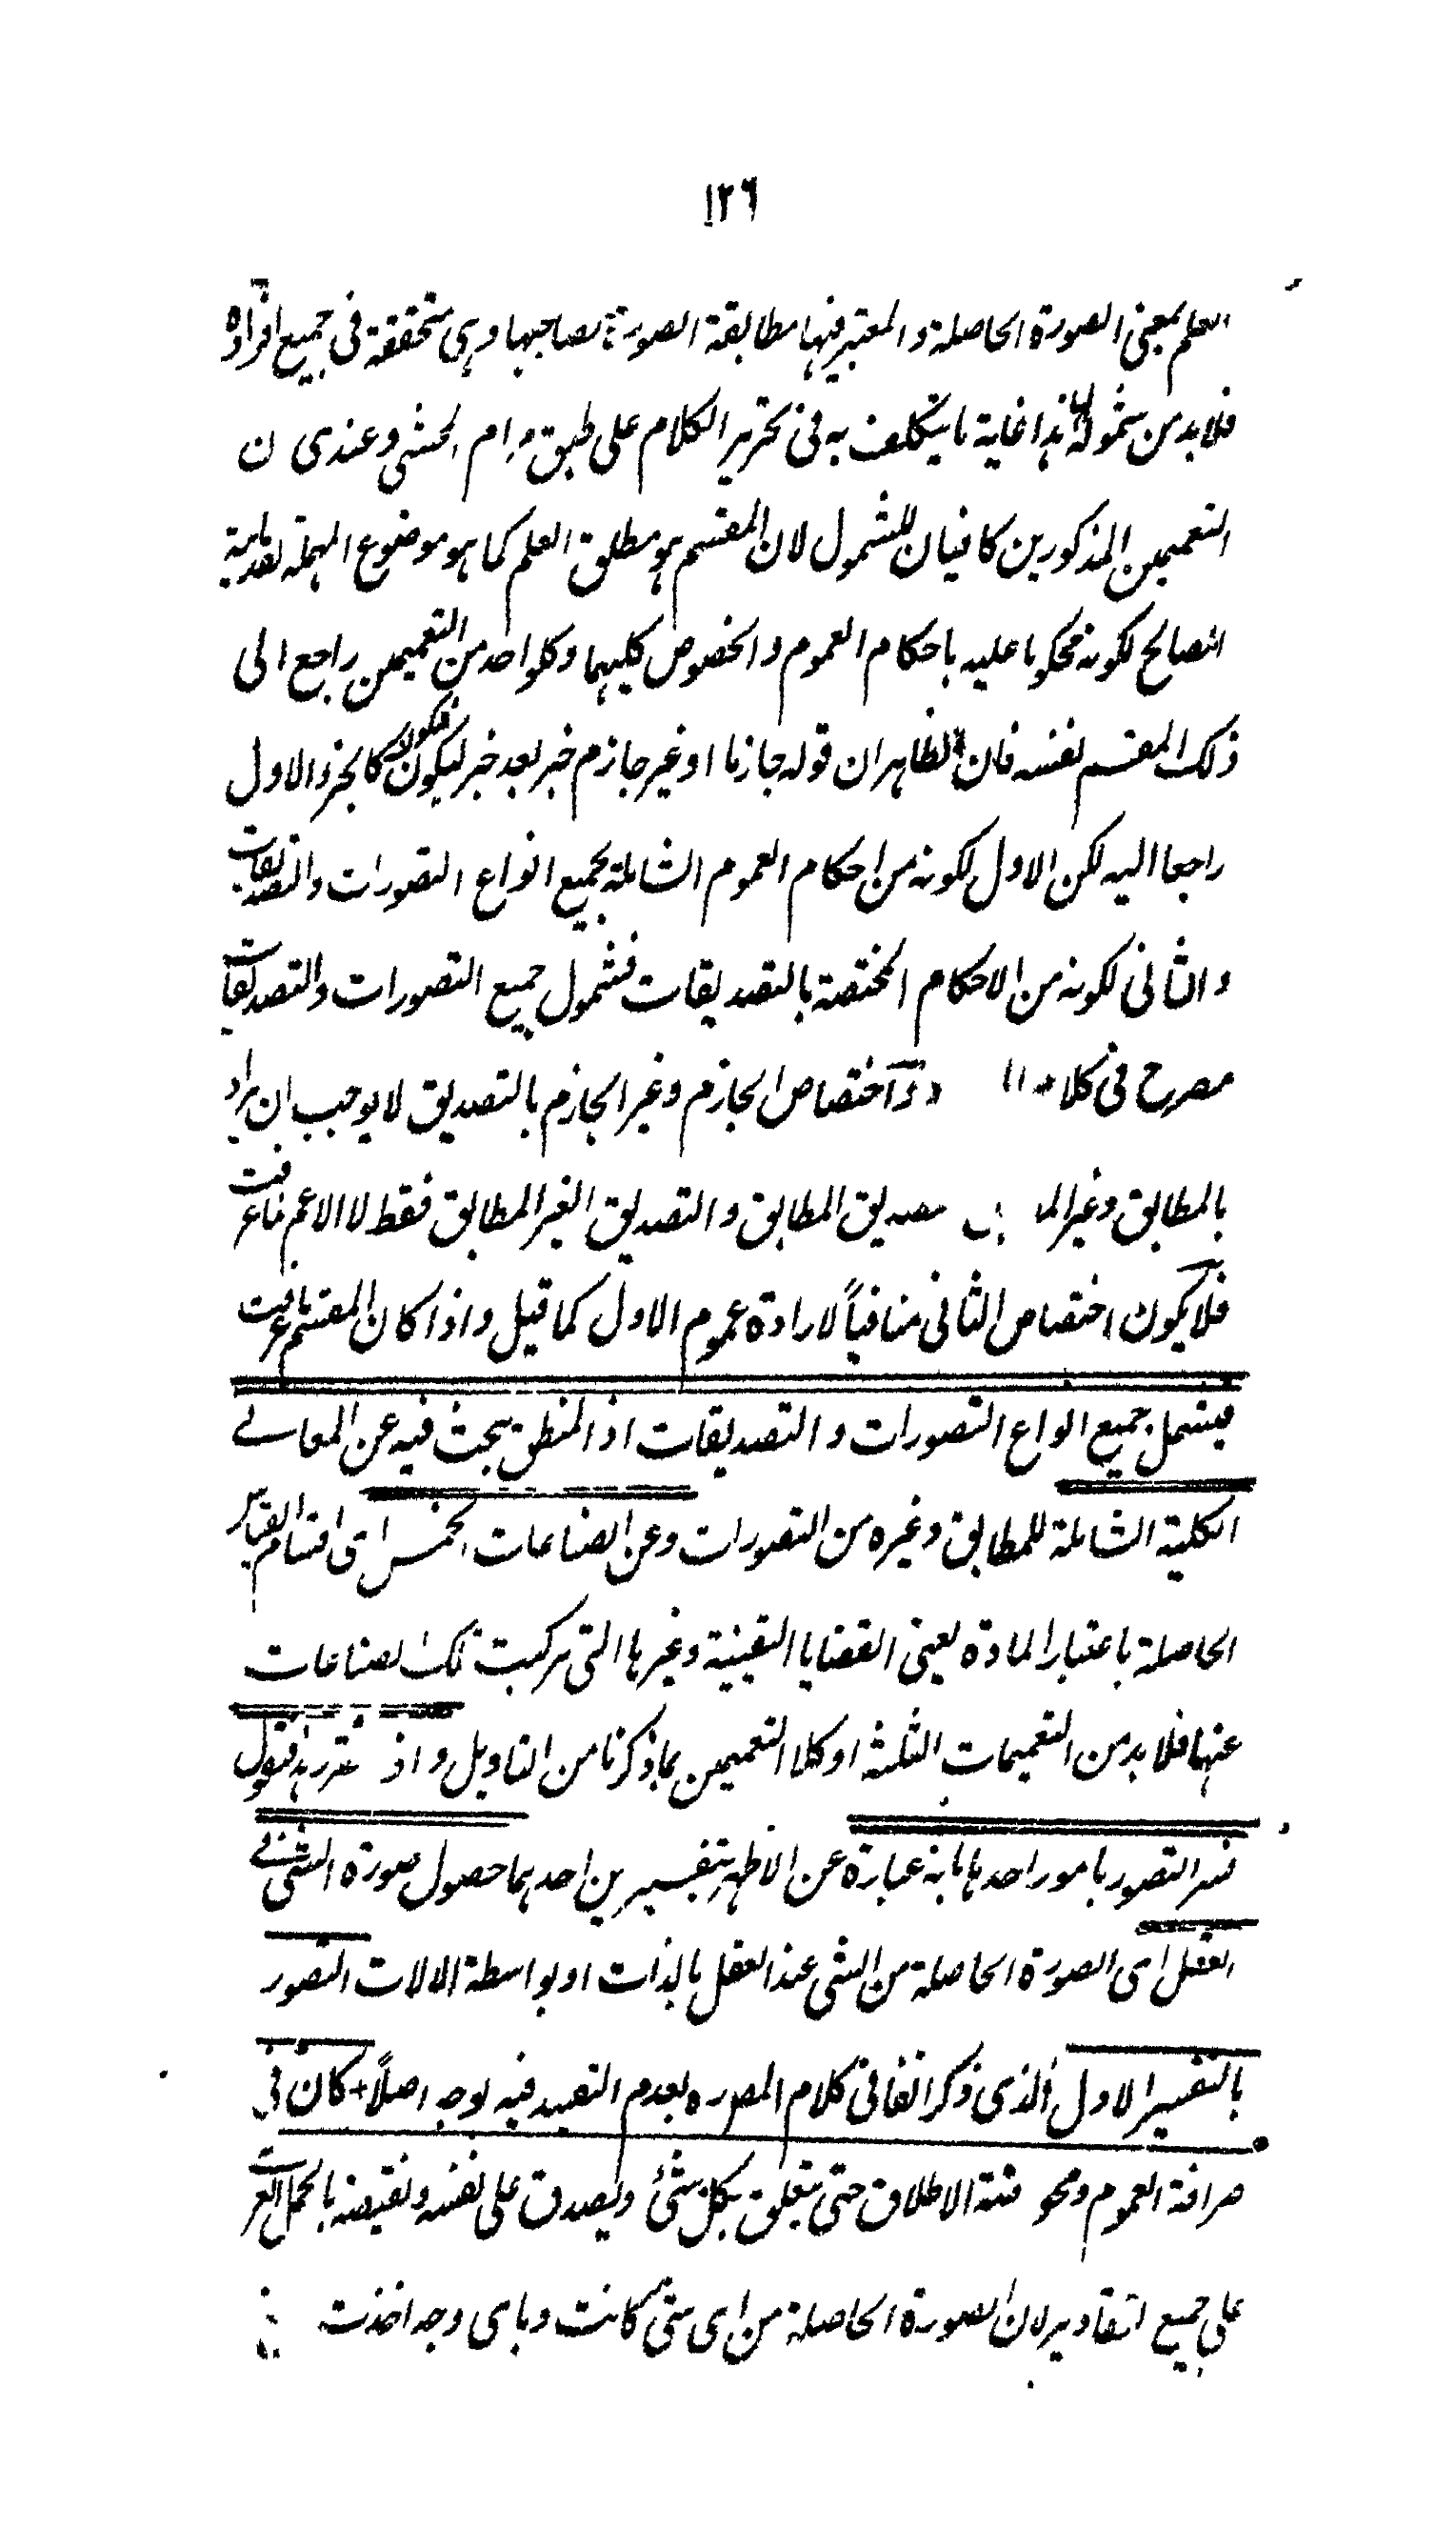 ١٢٦
العلم بمعنى الصورة الحاصلة والمعتبر فيها مطابقة الصورة لصاحبها وهى متحققة فى جميع افراده
فلا بد من شموله لها هذا غاية ما يتكلف به فى تحرير الكلام على طبق مرام المحشى وعندى ن
التعميمين المذكورين كافيان للشمول لان المقسم هو مطلق العلم كما هو موضوع المهملة القدمائية
الصالح لكونه محكوما عليه باحكام العموم والخصوص كليهما وكلواحد من التعميمين راجع الى
ذلك المقسم نفسه فان الظاهر ان قوله جازما او غير جازم خبر بعد خبر ليكون فيكون كالجزء الاول
راجعا اليه لكن الاول لكونه من احكام العموم الشاملة بجميع انواع التصورات والتصديقات
والثانى لكونه من الاحكام المختصة بالتصديقات فشمول جميع التصورات والتصديقات
مصرح فى كلا اختصاص الجازم وغير الجازم بالتصديق لا يوجب ان يراد
بالمطابق وغير المطابق التصديق المطابق والتصديق الغير المطابق فقط لا الاعم لما عرفت
فلا يكون اختصاص الثانى منافياً لارادة عموم الاول كما قيل واذا كان المقسم ما عرفت
فيشمل جميع انواع التصورات والتصديقات اذ المنطق يبحث فيه عن المعانے
الكلية الشاملة للمطابق وغيره من التصورات وعن الصناعات الخمس اى اقسام القياس
الحاصلة باعتبار المادة يعنى القضايا اليقينية وغيرها التى تركبت تلك الصناعات
عنها فلا بد من التعميمات الثلثة او كلا التعميمين بما ذكرنا من التاويل واذ تقرر هذا فنقول
فسر التصور بامور احدها بانه عبارة عن الاظهر بتفسيرين احدهما حصول صورة الشئ فے
العقل اى الصورة الحاصلة من الشى عند العقل بالذات او بواسطة الالات التصور
بالتفسير الاول الذى ذكر انفا فى كلام المصره لعدم التقييد فيه لوجه اصلًا كان فى
صرافة العموم ومحو الاطلاق حتى يتعلق بكل شئ ويصدق على نفسه ونقيضه بالحمل العرضے
على جميع التقادير لان الصورة الحاصلة من اى شئ كانت وباى وجه اخذت